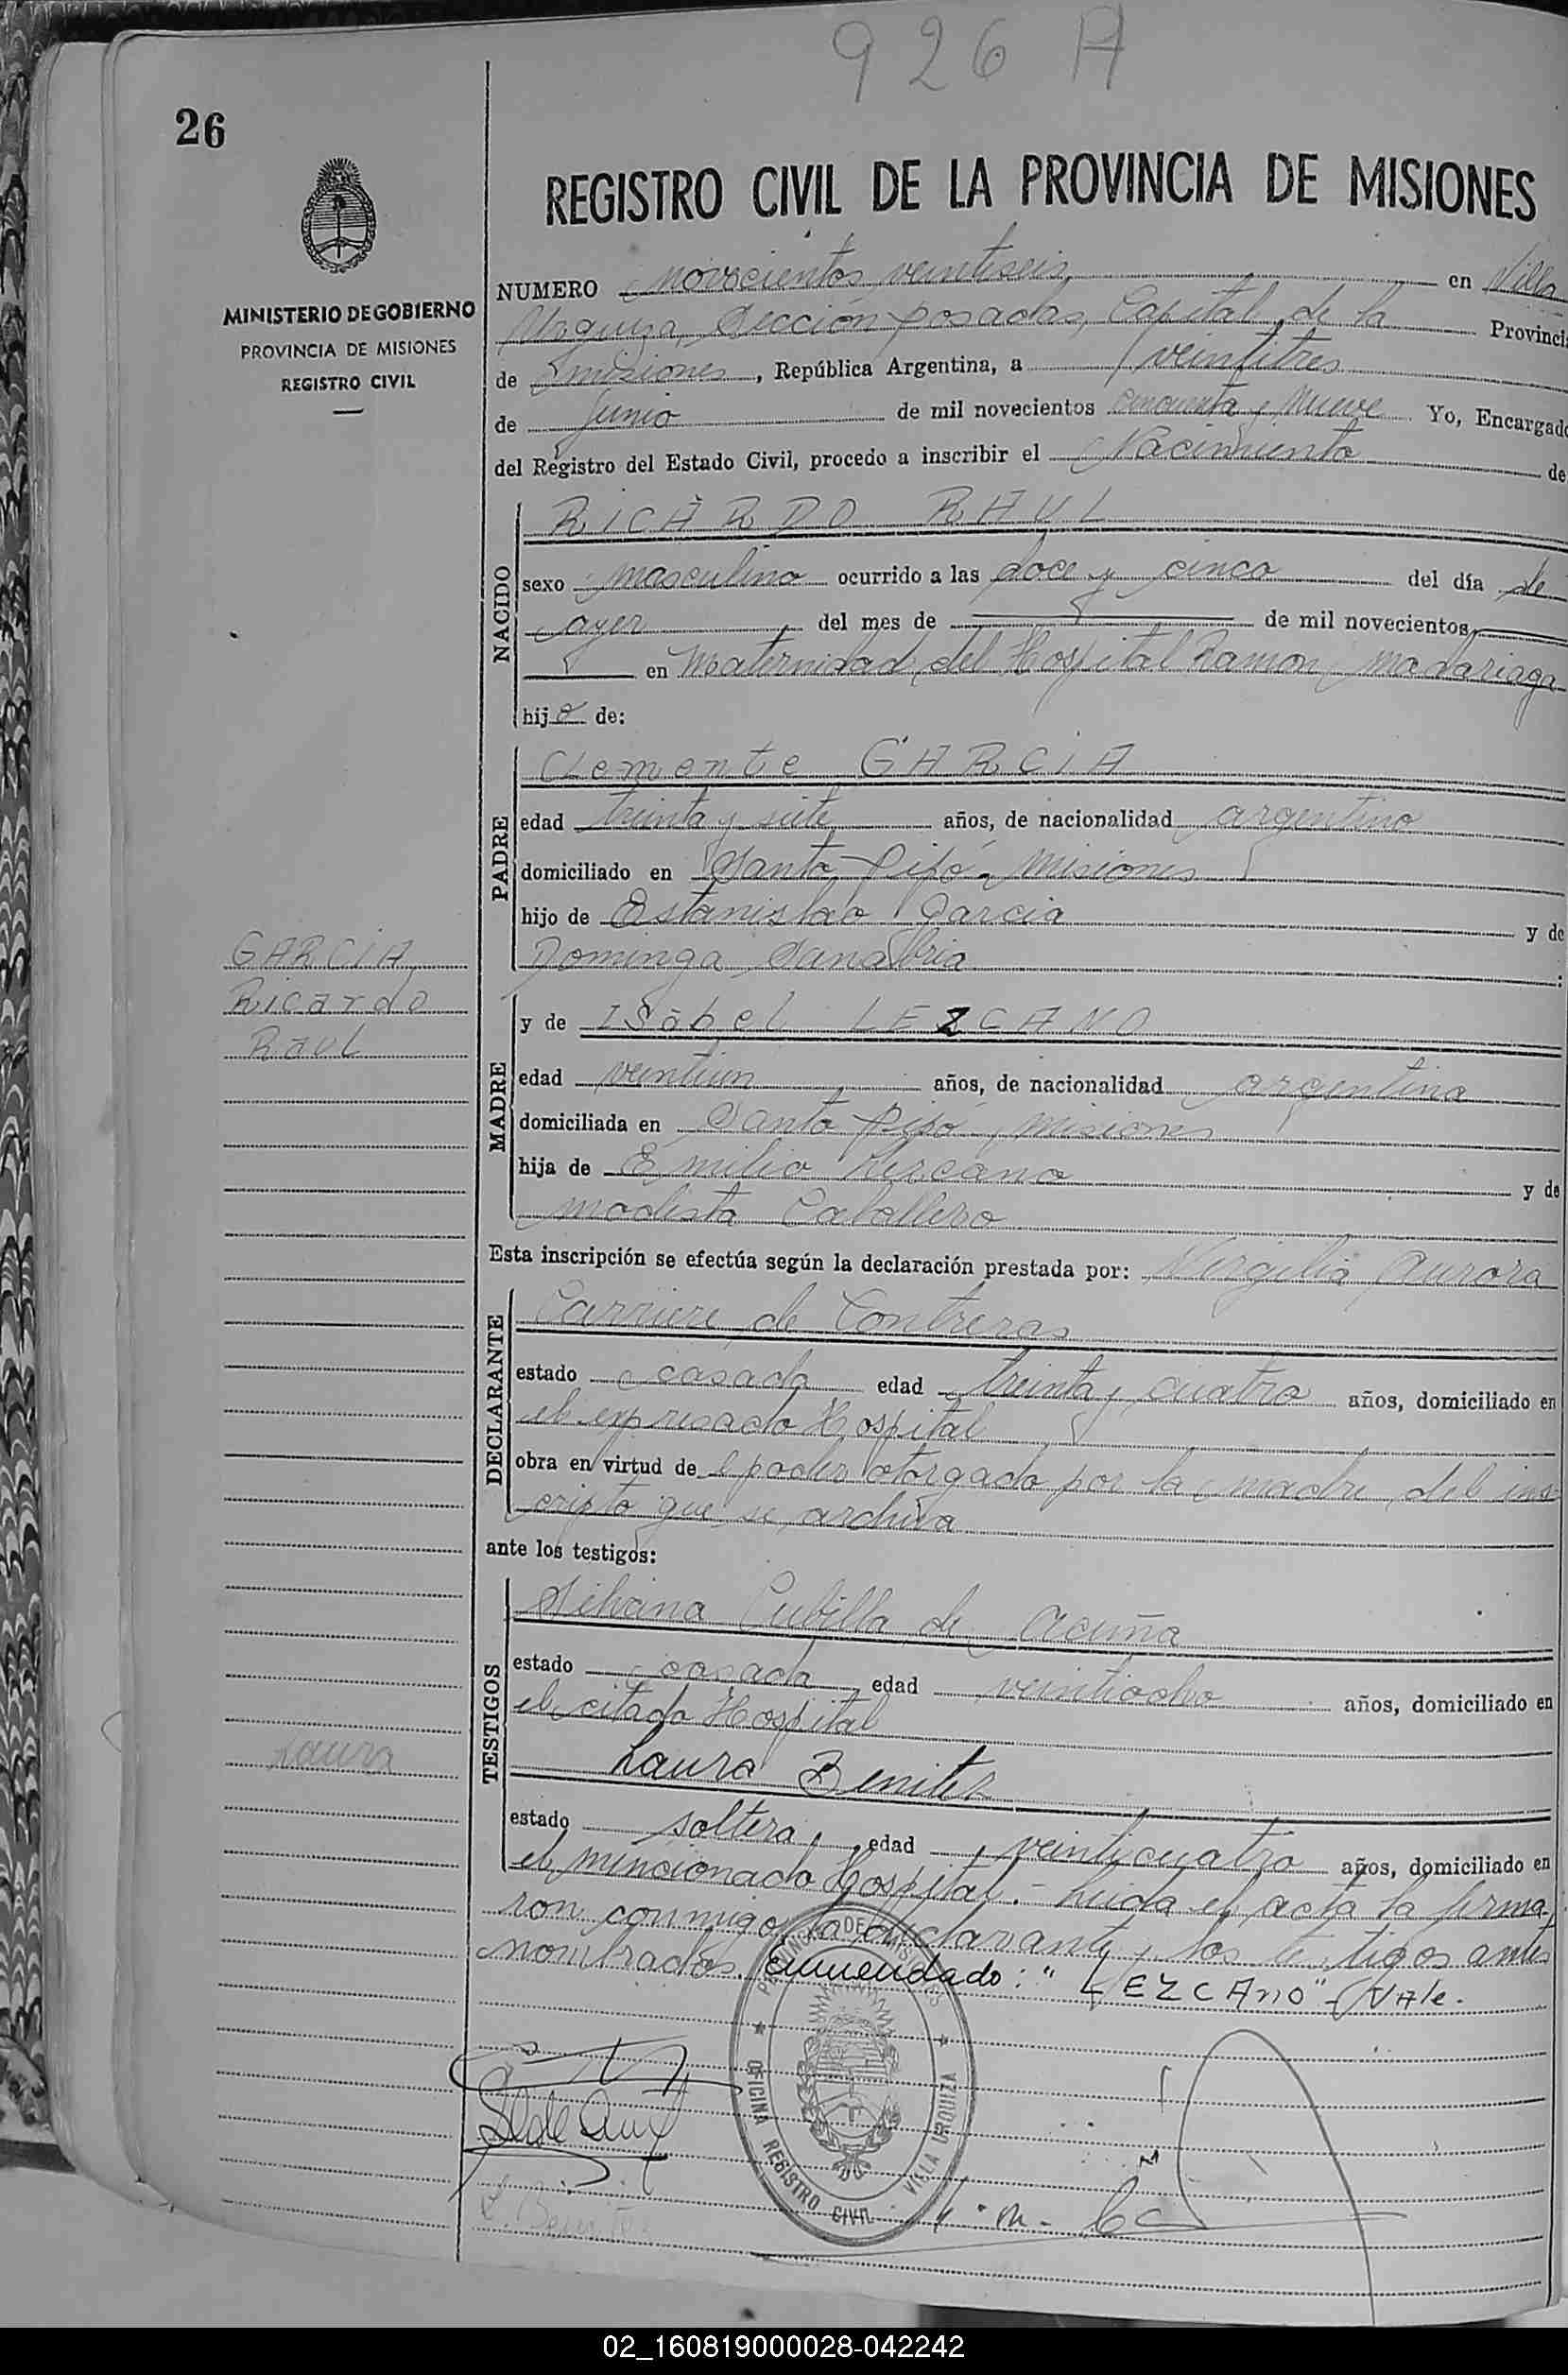 926 A
26
REGISTRO CIVIL DE LA PROVINCIA DE MISIONES
MINISTERIO DE GOBIERNO
PROVINCIA DE MISIONES
REGISTRO CIVIL
NUMERO novecientos veintiseis en Villa
Urquiza, Sección posadas, Capital de la Provincia
de Misiones, República Argentina, a veintitres
de Junio de mil novecientos cincuenta y nueve Yo, Encargado
del Registro del Estado Civil, procedo a inscribir el Nacimiento de
NACIDO
RICARDO RAUL
sexo masculino ocurrido a las doce y cinco del día de
ayer del mes de de mil novecientos
en Maternidad del Hospital Ramon madariaga
hijo de:
PADRE
Clemente GARCIA
edad treinta y siete años, de nacionalidad argentino
domiciliado en Santo Pipó - Misiones
hijo de Estanislao Garcia y de
Dominga Sanabria :
GARCIA
Ricardo
Raul
MADRE
y de Isabel LEZCANO
edad veintiun años, de nacionalidad argentina
domiciliada en Santo Pipó, misiones
hija de Emilio Lezcano y de
modesta Caballero
Esta inscripción se efectúa según la declaración prestada por: Virgilia Aurora
DECLARANTE
Carriere de Contreras
estado casada edad treinta y cuatro años, domiciliado en
el expresado Hospital
obra en virtud de el poder otorgado por la madre del ins-
cripto que se archiva
ante los testigos:
TESTIGOS
Silvana Cubilla de Acuña
estado casada edad veintiocho años, domiciliado en
el citado Hospital
Laura
Laura Benitez
estado soltera, edad veinticuatro años, domiciliado en
el mencionado Hospital.- Leida el acta la firma-
ron conmigo la declarante y los testigos antes
nombrados. Enmendado: "LEZCAno" - Vale.
PROVINCIA DE MISIONES
OFICINA REGISTRO CIVIL - VILLA URQUIZA
L. Benitez
02_160819000028-042242